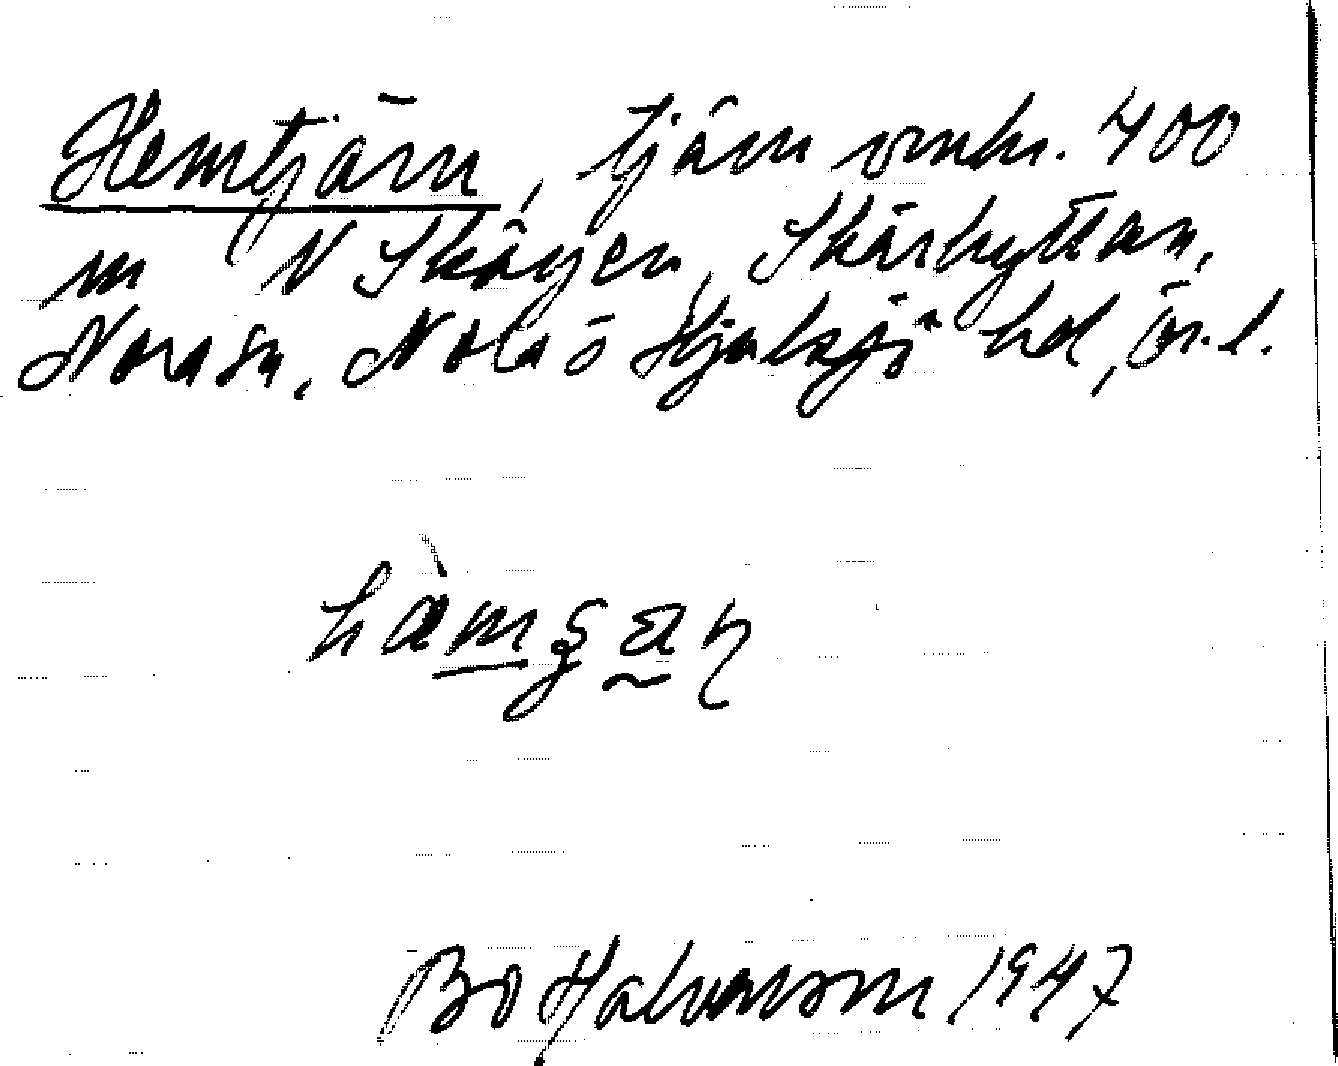 Hemtjärn, tjärn omkr. 400
m N Skågen, Skärhyttan,
Nora sn, Nora o Hjulsjö hd, Ör. l.
hàmʂæɳ
Bo Halvarson 1947